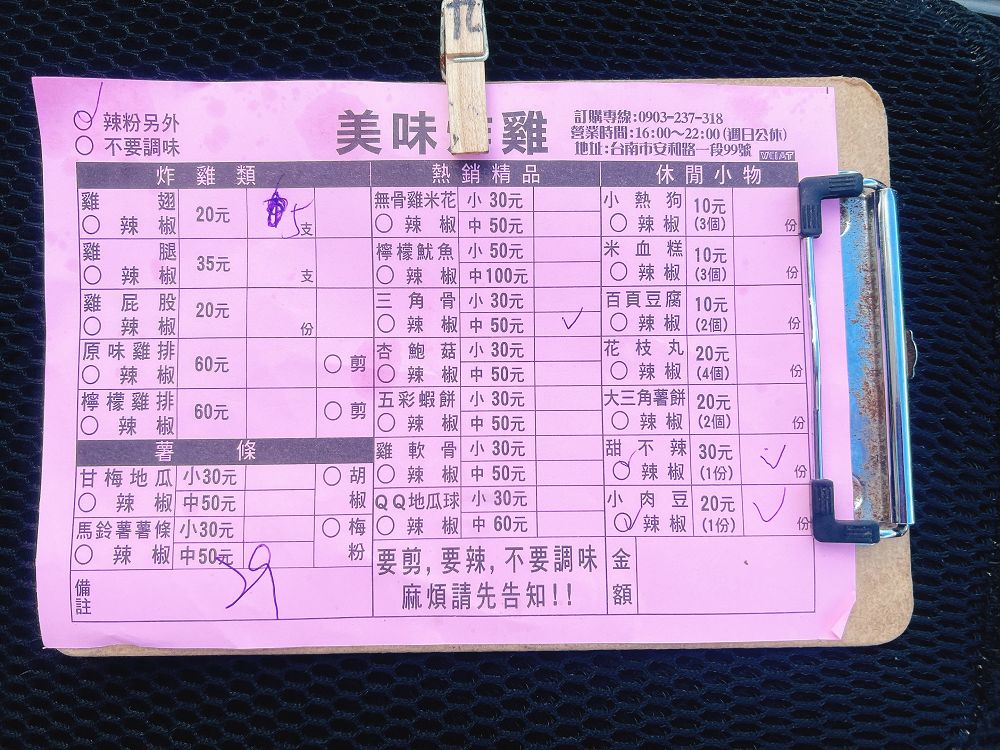 辣粉另外
不要調味
美味炸雞
訂購專線:0903-237-318
營業時間:16:00～22:00(週日公休)
地址:台南市安和路一段99號
炸雞類
雞翅 20元 5支
辣椒
雞腿 35元 支
辣椒
雞屁股 20元 份
辣椒
原味雞排 60元 剪
辣椒
檸檬雞排 60元 剪
辣椒
薯條
甘梅地瓜 小30元
辣椒 中50元
馬鈴薯薯條 小30元
辣椒 中50元
胡椒
梅粉
備註
熱銷精品
無骨雞米花 小 30元
辣椒 中 50元
檸檬魷魚 小 50元
辣椒 中100元
三角骨 小 30元
辣椒 中 50元
杏鮑菇 小 30元
辣椒 中 50元
五彩蝦餅 小 30元
辣椒 中 50元
雞軟骨 小 30元
辣椒 中 50元
QQ地瓜球 小 30元
辣椒 中 60元
要剪,要辣,不要調味
麻煩請先告知!!
休閒小物
小熱狗 10元
辣椒 (3個) 份
米血糕 10元
辣椒 (3個) 份
百頁豆腐 10元
辣椒 (2個) 份
花枝丸 20元
辣椒 (4個) 份
大三角薯餅 20元
辣椒 (2個) 份
甜不辣 30元
辣椒 (1份) 份
小肉豆 20元
辣椒 (1份) 份
金額